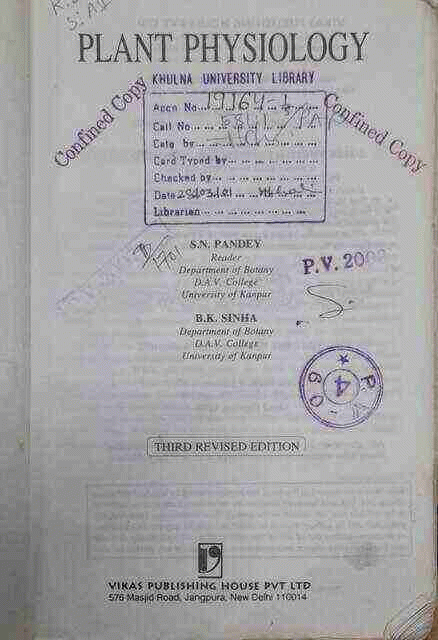 PLANT PHYSIOLOGY
KHULNA UNIVERSITY LIBRARY
Confined Copy
Accn No...
Call No...
Catg by...
Card Typed by...
Checked by...
Date 28/03/01
Librarian
Confined Copy
S.N. PANDEY
Reader
Department of Botany
D.A.V. College
University of Kanpur
P.V. 2002
B.K. SINHA
Department of Botany
D.A.V. College
University of Kanpur
THIRD REVISED EDITION
VIKAS PUBLISHING HOUSE PVT LTD
576 Masjid Road, Jangpura, New Delhi 110014